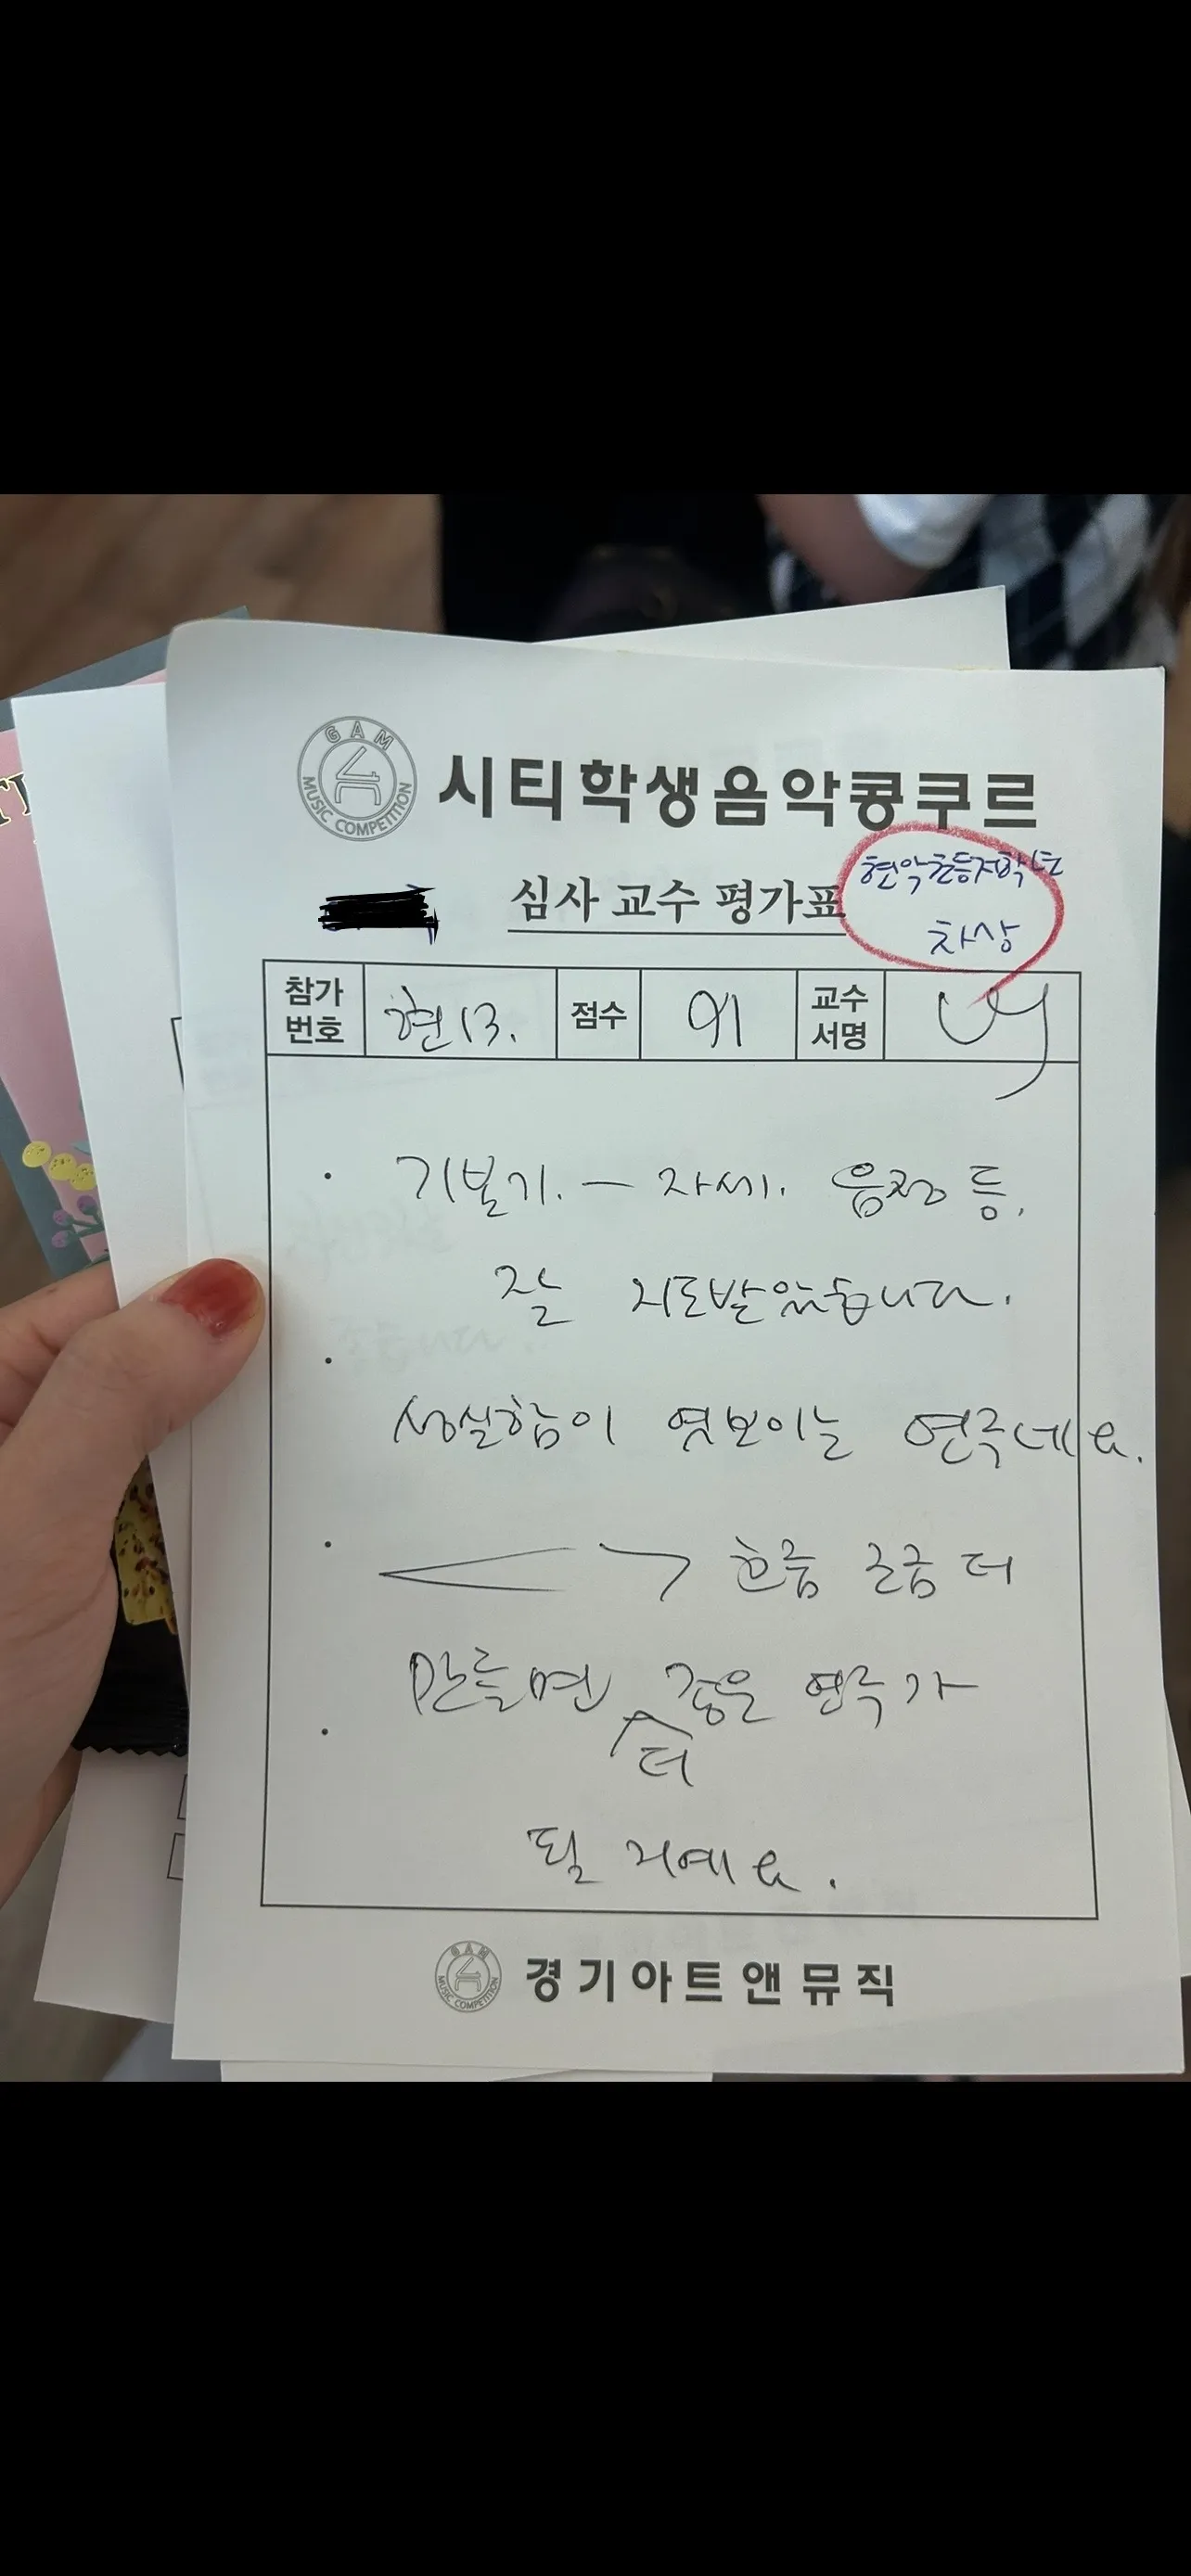 GAM
MUSIC COMPETITION
시티학생음악콩쿠르
심사 교수 평가표
현악초등저학년
차상
참가 번호 현 13. 점수 91 교수 서명
· 기본기. — 자세. 음정 등.
잘 지도받았습니다.
· 성실함이 엿보이는 연주네요.
· < > 흐름 조금 더
만들면 더 좋은 연주가
·
될 거예요.
GAM
MUSIC COMPETITION
경기아트앤뮤직